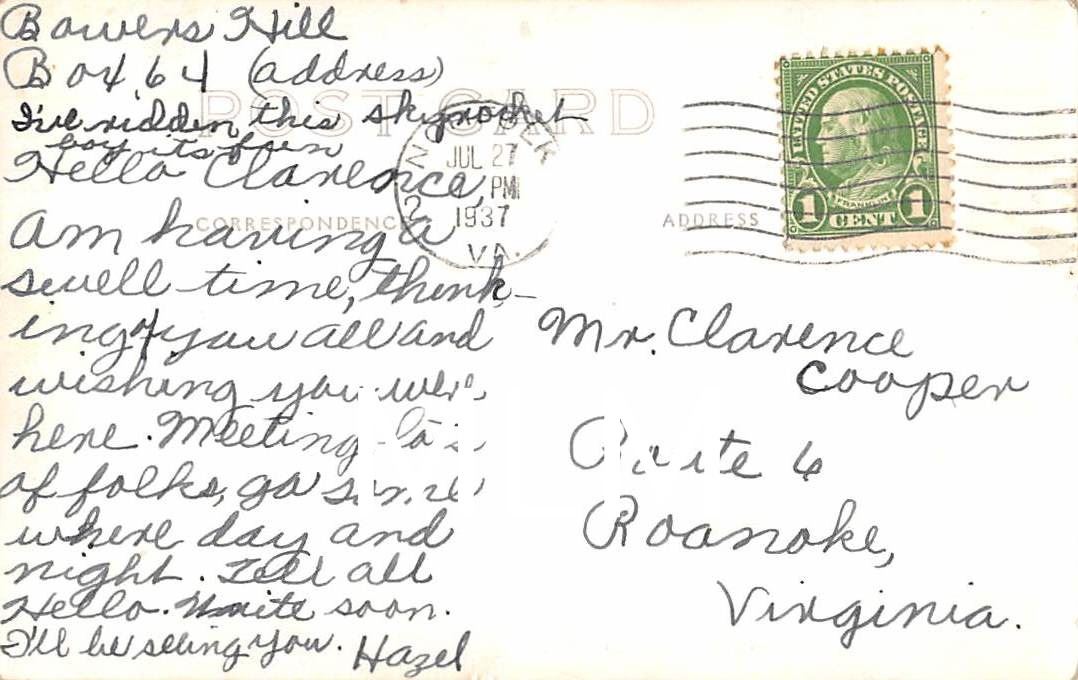 Bowers Hill
Box 64 (address)
I've ridden this skyrocket
boy its fun
POST CARD
Hello Clarence,
CORRESPONDENCE
ADDRESS
Am having a
swell time, think-
ing of you all and
wishing you were
here. Meeting lots
of folks, go some
where day and
night. Tell all
Hello. Write soon.
I'll be seeing you. Hazel
NORFOLK
JUL 27
PM
1937
VA.
UNITED STATES POSTAGE
FRANKLIN
1 CENT 1
Mr. Clarence
Cooper
Route 6
Roanoke,
Virginia.